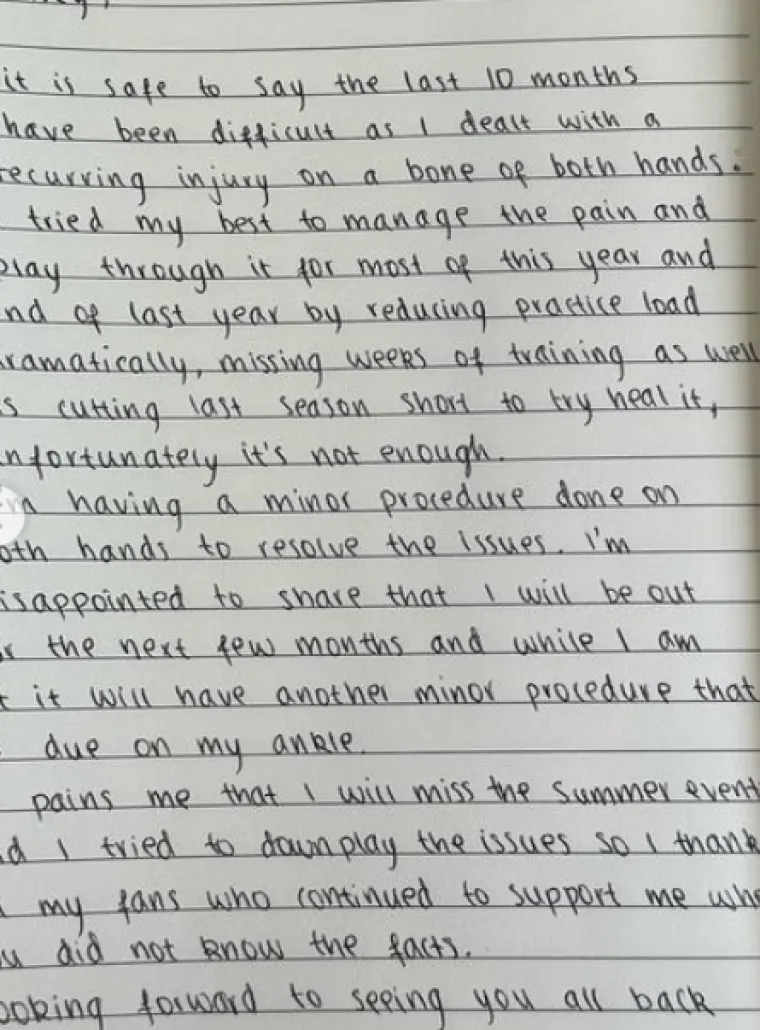 it is safe to say the last 10 months
have been difficult as I dealt with a
recurring injury on a bone of both hands.
tried my best to manage the pain and
play through it for most of this year and
nd of last year by reducing practice load
ramatically, missing weeks of training as well
s cutting last season short to try heal it,
nfortunately it's not enough.
m having a minor procedure done on
oth hands to resolve the issues. I'm
isappointed to share that I will be out
r the next few months and while I am
t it will have another minor procedure that
due on my ankle.
pains me that I will miss the summer event
d I tried to downplay the issues so I thank
my fans who continued to support me whe
u did not know the facts.
ooking forward to seeing you all back